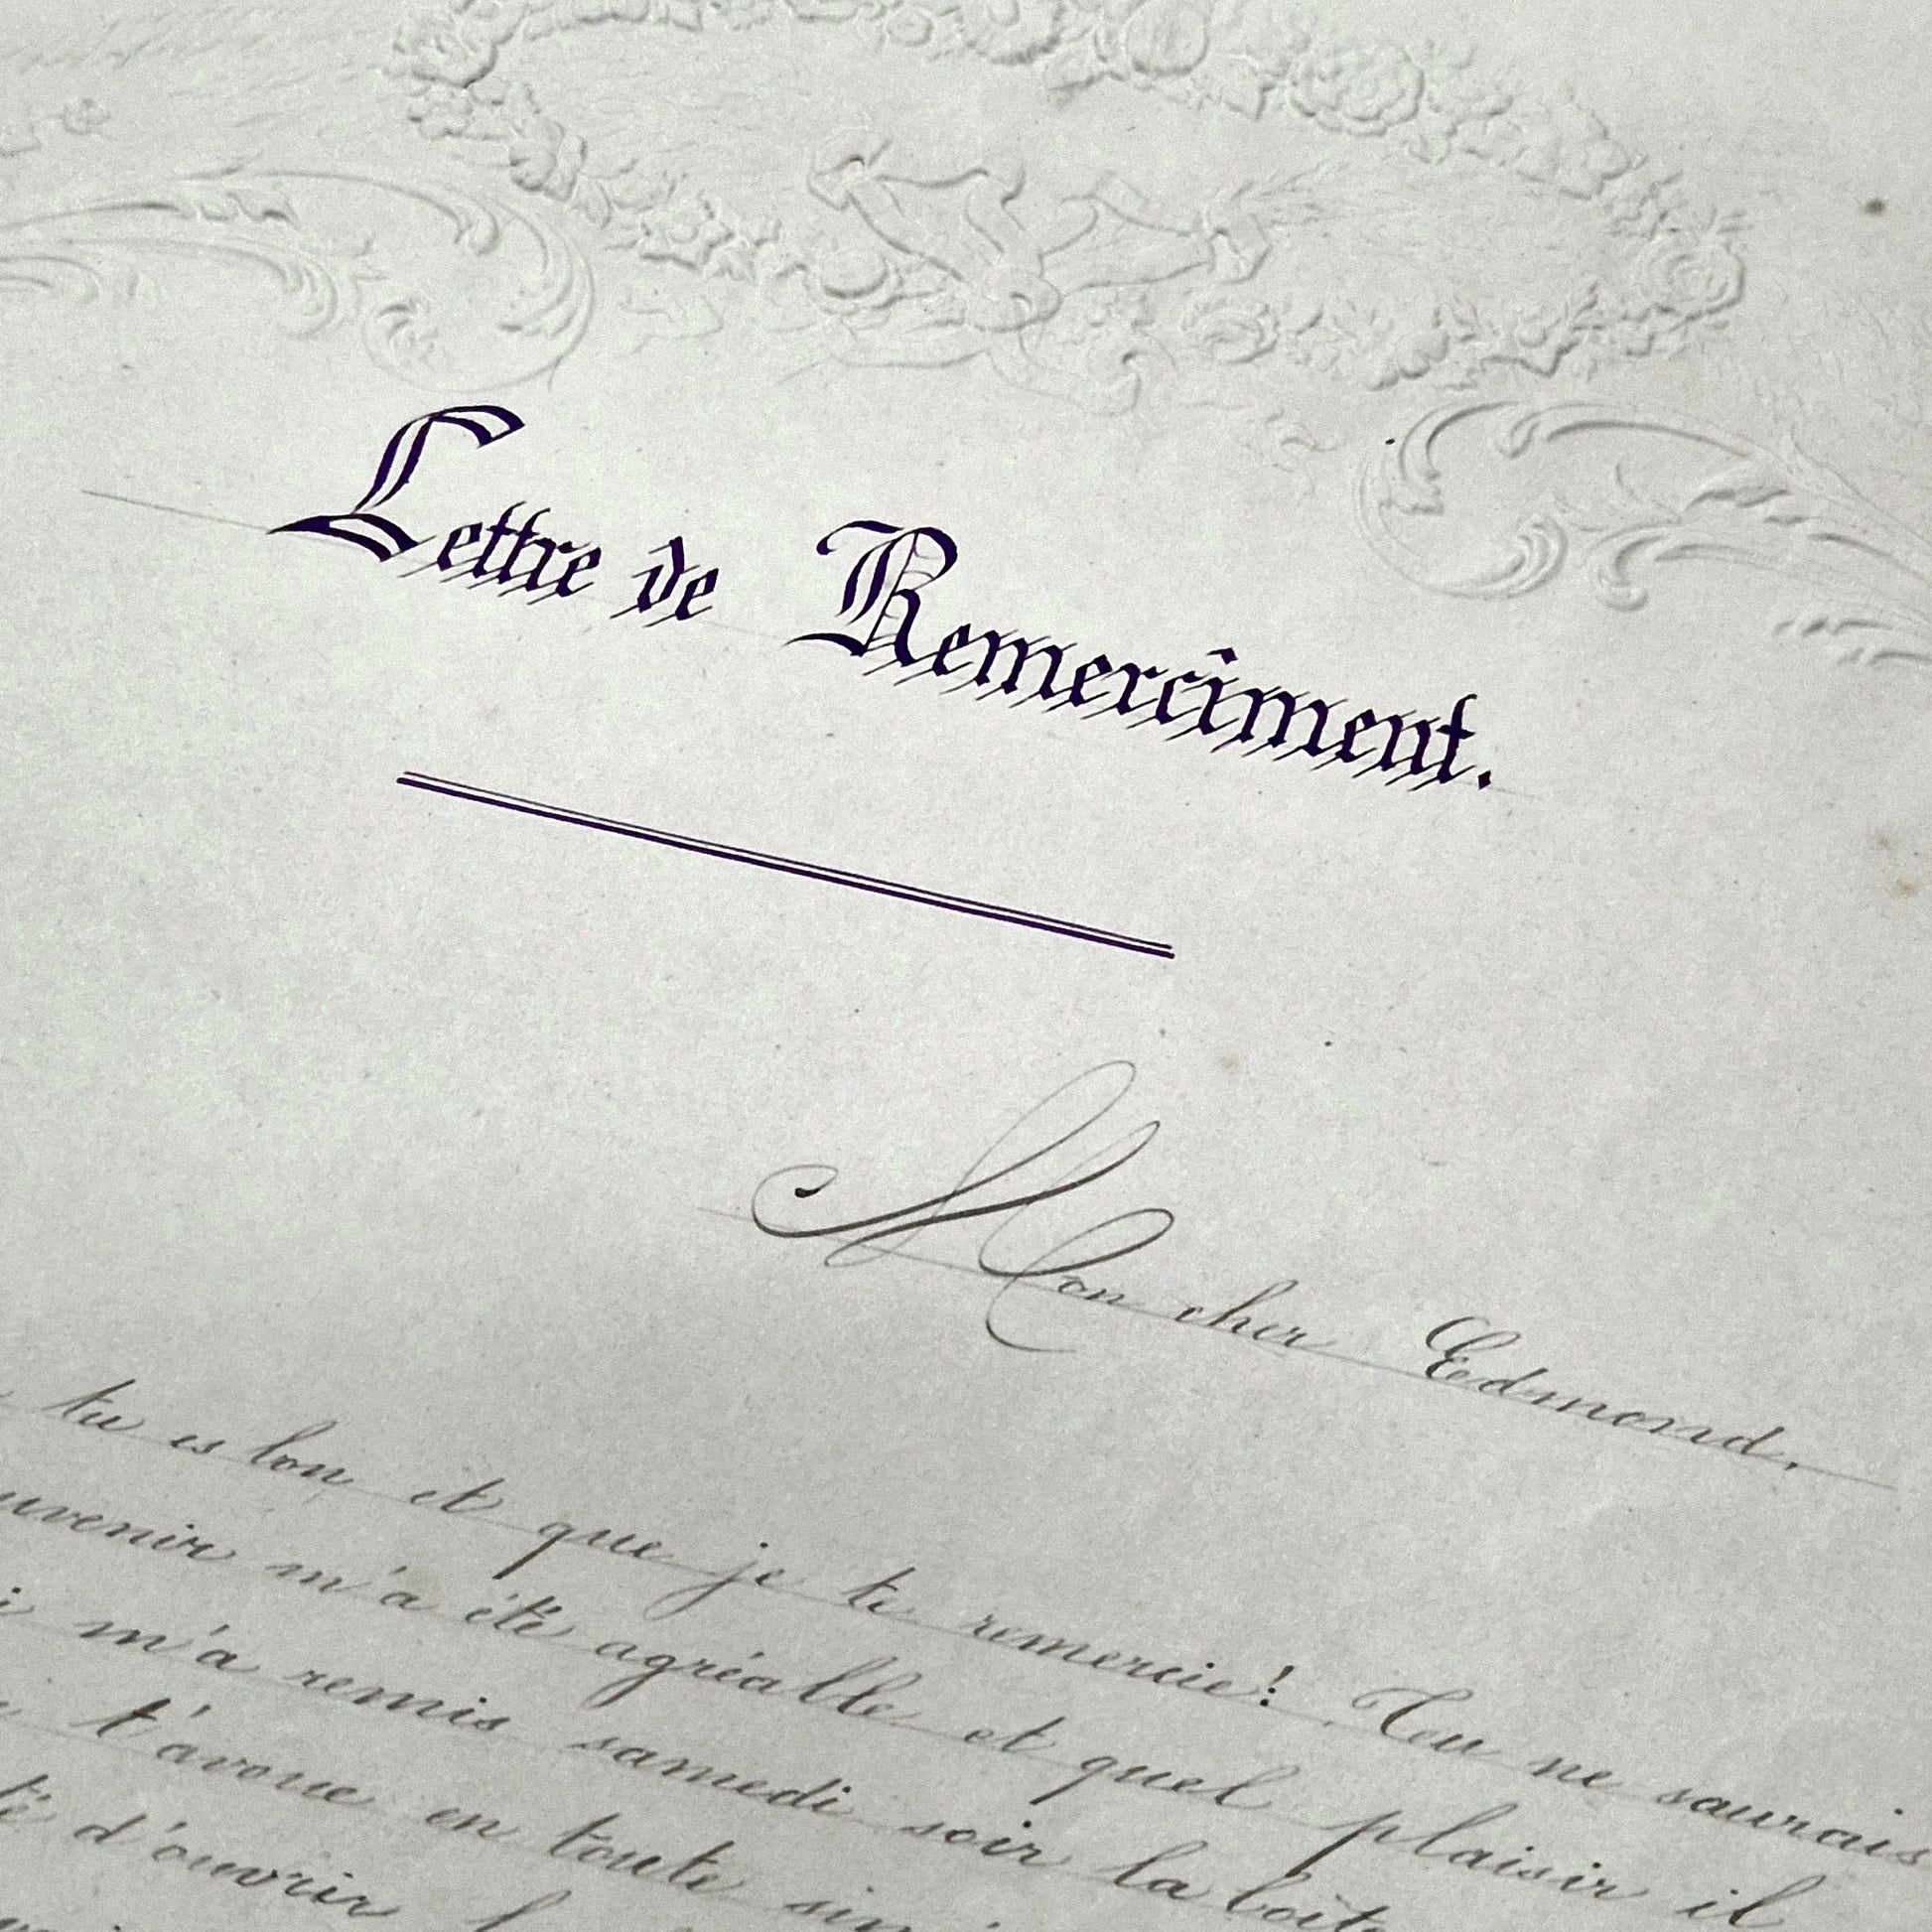 Lettre de Remercîment.
Mon cher Edmond.
tu es bon et que je te remercie! Tu ne saurais
uvenir m'a été agréable et quel plaisir il
i m'a remis samedi soir la boîte
t'avoue en toute
té d'ouvrir